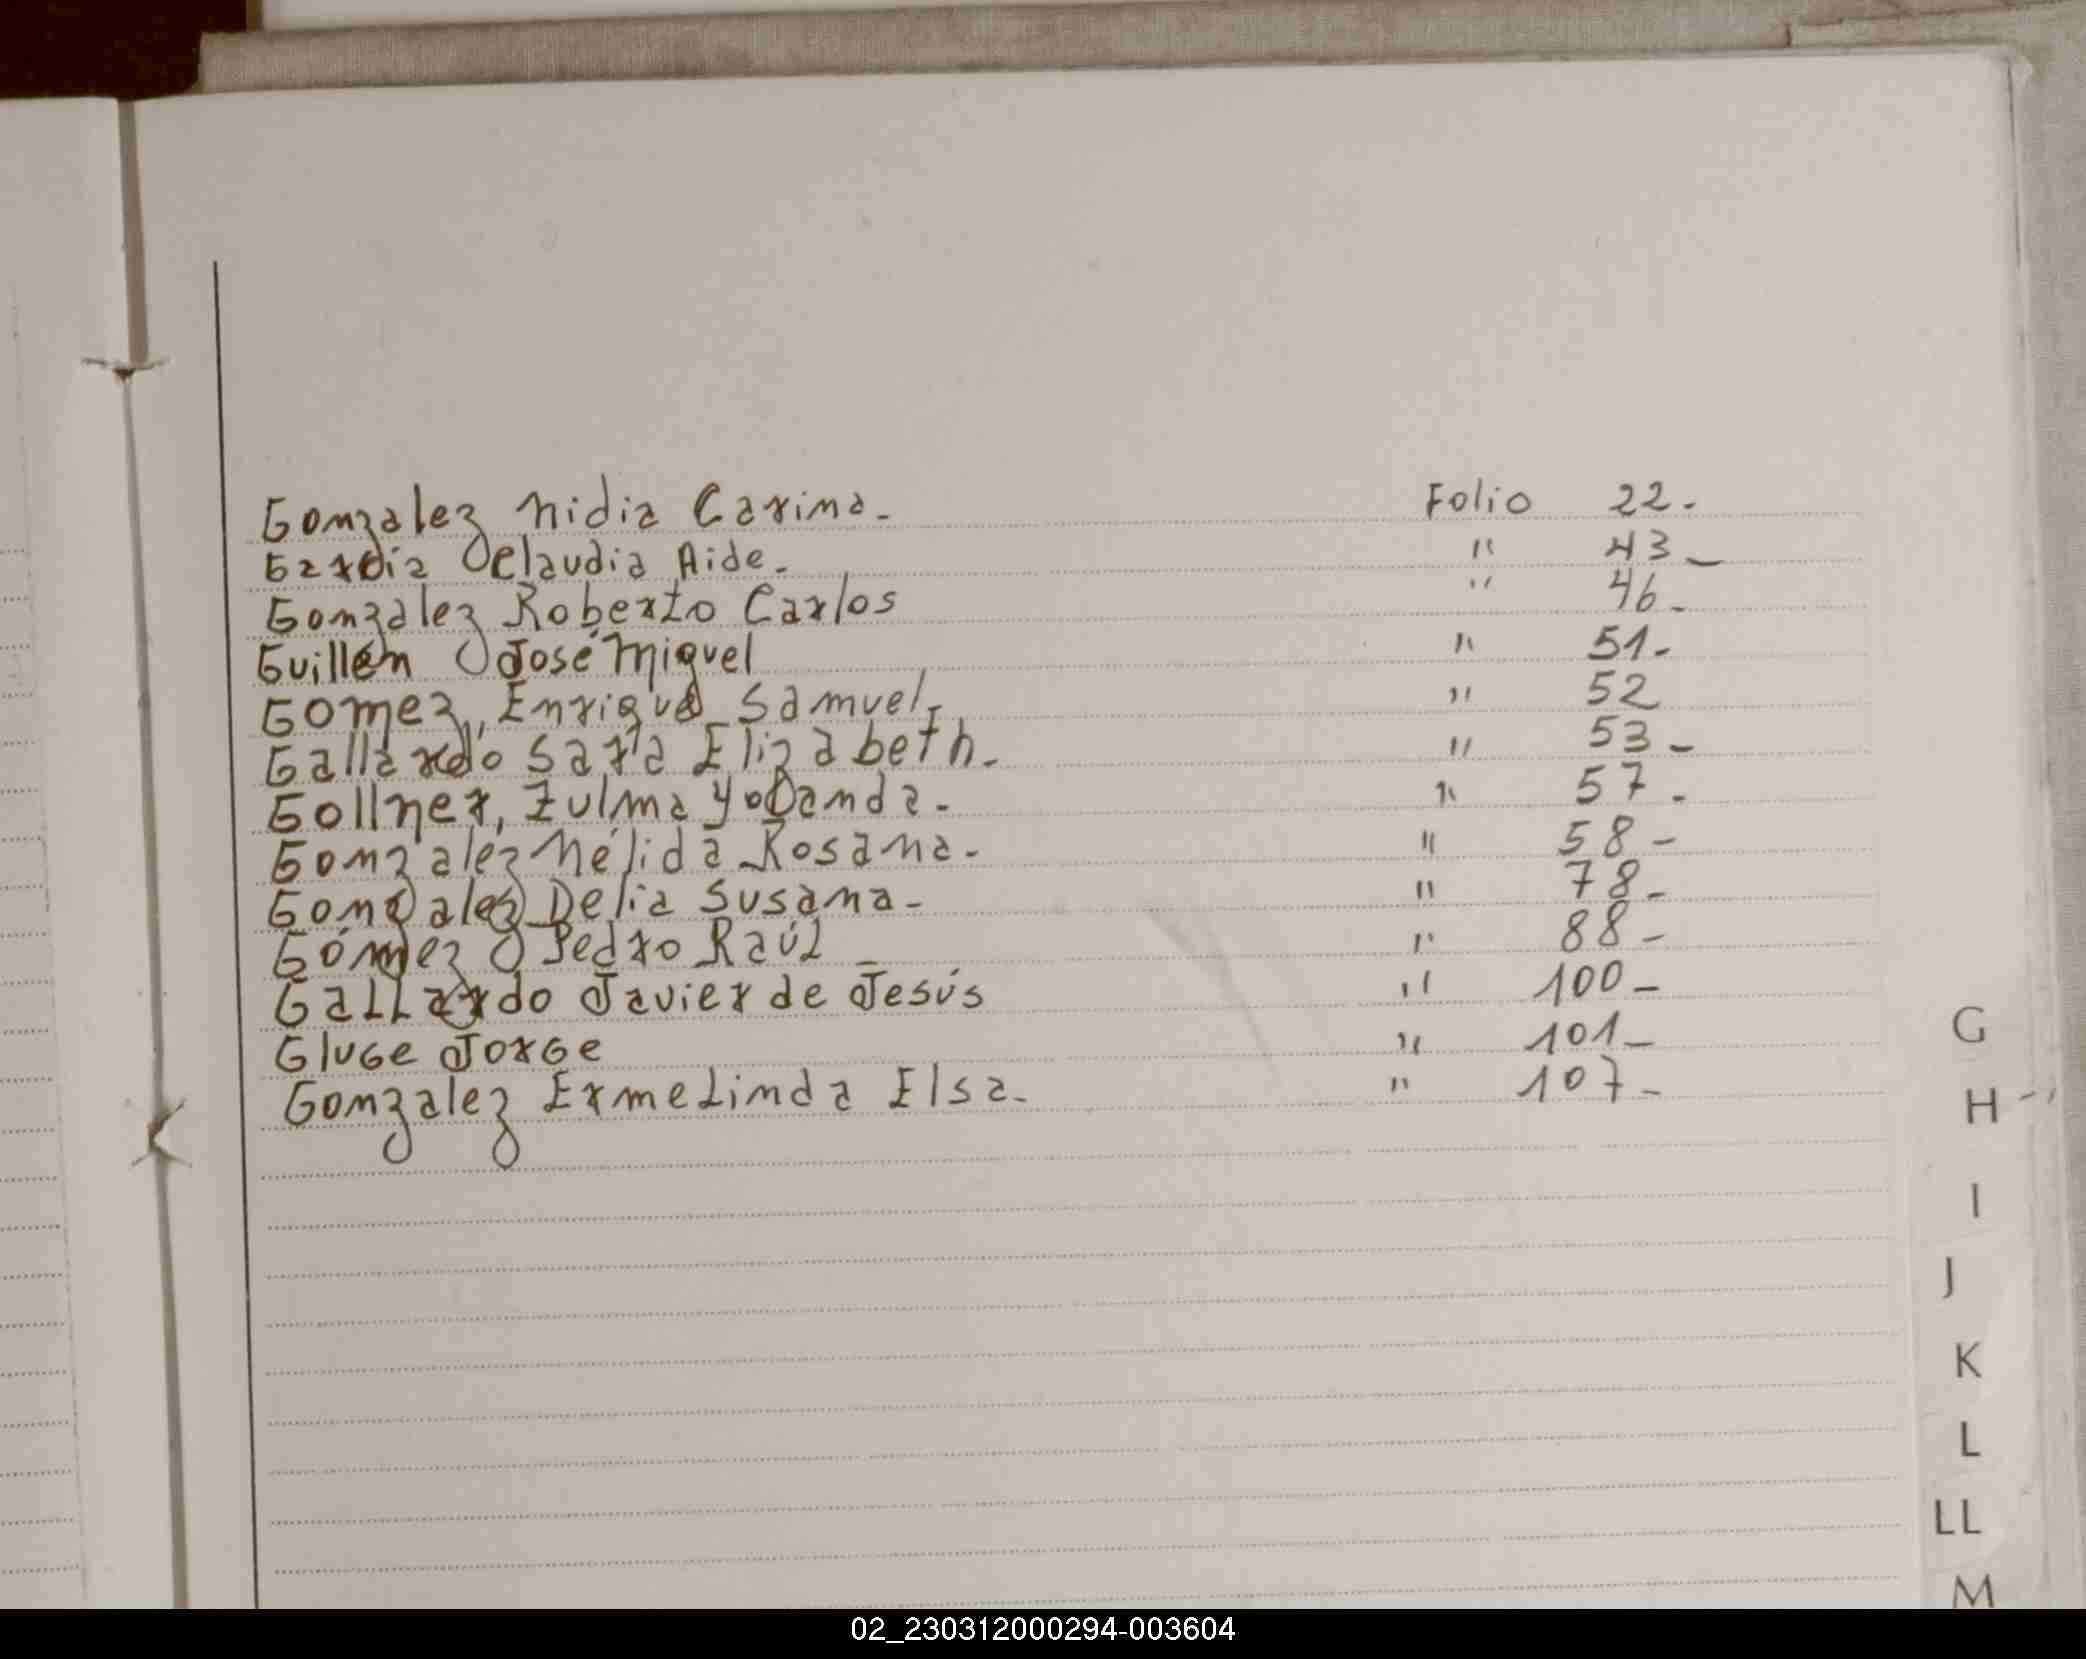 Gonzalez Nidia Carina. Folio 22.
Garcia Claudia Aide. " 43 _
Gonzalez Roberto Carlos " 46 -
Guillén José Miguel " 51 -
Gomez, Enrique Samuel. " 52
Gallardo Sara Elizabeth. " 53 -
Gollner, Zulma Yolanda. " 57 -
Gonzalez Nélida Rosana. " 58 -
Gonzalez Delia Susana - " 78 -
Gómez Pedro Raúl _ " 88 -
Gallardo Javier de Jesús " 100 -
Gluge Jorge " 101 -
Gonzalez Ermelinda Elsa. " 107 -
G
H
I
J
K
L
LL
M
02_230312000294-003604